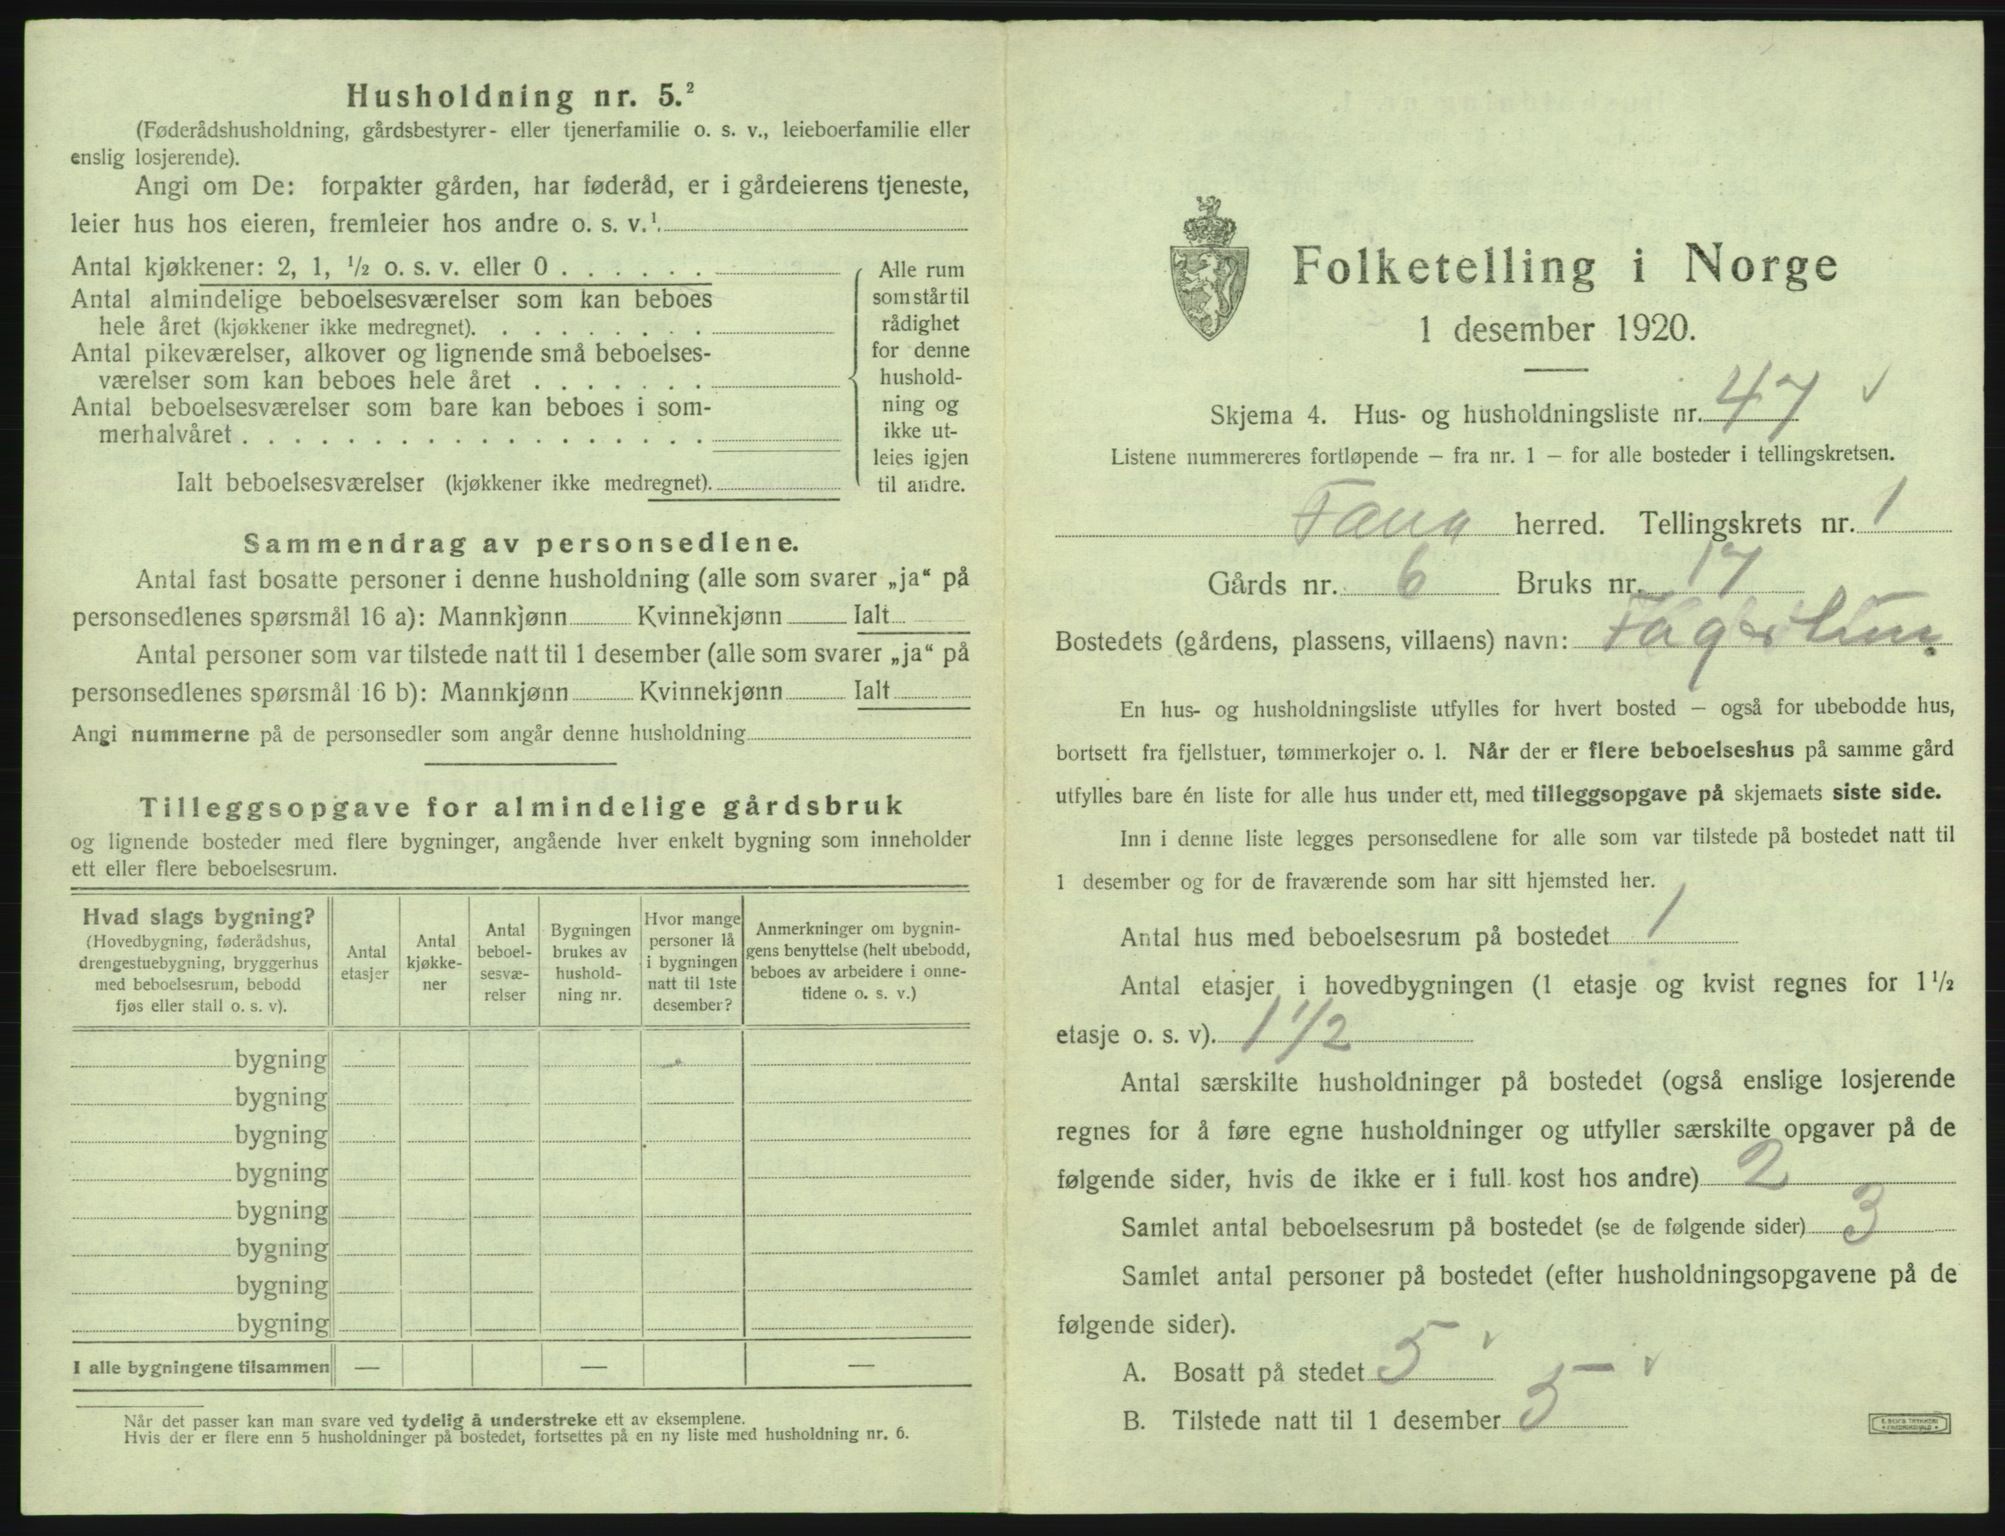 Husholdning nr. 5.²
(Føderådshusholdning, gårdsbestyrer- eller tjenerfamilie o. s. v., leieboerfamilie eller
enslig losjerende).
Angi om De: forpakter gården, har føderåd, er i gårdeierens tjeneste,
leier hus hos eieren, fremleier hos andre o. s. v.¹.
Antal kjøkkener: 2, 1, ½ o. s. v. eller 0 . . . . . .
Antal almindelige beboelsesværelser som kan beboes
hele året (kjøkkener ikke medregnet). . . . . . . . .
Antal pikeværelser, alkover og lignende små beboelses-
værelser som kan beboes hele året . . . . . . .
Antal beboelsesværelser som bare kan beboes i som-
merhalvåret . . . . . . . . . . . . . . . . . .
Ialt beboelsesværelser (kjøkkener ikke medregnet).
Alle rum
som står til
rådighet
for denne
hushold-
ning og
ikke ut-
leies igjen
til andre.
Sammendrag av personsedlene.
Antal fast bosatte personer i denne husholdning (alle som svarer „ja“ på
personsedlenes spørsmål 16 a): Mannkjønn Kvinnekjønn Ialt
Antal personer som var tilstede natt til 1 desember (alle som svarer „ja“ på
personsedlenes spørsmål 16 b): Mannkjønn Kvinnekjønn Ialt
Angi nummerne på de personsedler som angår denne husholdning
Tilleggsopgave for almindelige gårdsbruk
og lignende bosteder med flere bygninger, angående hver enkelt bygning som inneholder
ett eller flere beboelsesrum.
Hvad slags bygning?
(Hovedbygning, føderådshus,
drengestuebygning, bryggerhus
med beboelsesrum, bebodd
fjøs eller stall o. s. v).
Antal
etasjer
Antal
kjøkke-
ner
Antal
beboel-
sesvæ-
relser
Bygningen
brukes av
hushold-
ning nr.
Hvor mange
personer lå
i bygningen
natt til 1ste
desember?
Anmerkninger om bygnin-
gens benyttelse (helt ubebodd,
beboes av arbeidere i onne-
tidene o. s. v.)
bygning
bygning
bygning
bygning
bygning
bygning
bygning
bygning
I alle bygningene tilsammen — — —
Når det passer kan man svare ved tydelig å understreke ett av eksemplene.
Hvis der er flere enn 5 husholdninger på bostedet, fortsettes på en ny liste med husholdning nr. 6.
Folketelling i Norge
1 desember 1920.
Skjema 4. Hus- og husholdningsliste nr. 47 ✓
Listene nummereres fortløpende – fra nr. 1 – for alle bosteder i tellingskretsen.
Fana herred. Tellingskrets nr. 1
Gårds nr. 6 Bruks nr. 17
Bostedets (gårdens, plassens, villaens) navn: Fagerlun
En hus- og husholdningsliste utfylles for hvert bosted – også for ubebodde hus,
bortsett fra fjellstuer, tømmerkojer o. l. Når der er flere beboelseshus på samme gård
utfylles bare én liste for alle hus under ett, med tilleggsopgave på skjemaets siste side.
Inn i denne liste legges personsedlene for alle som var tilstede på bostedet natt til
1 desember og for de fraværende som har sitt hjemsted her.
Antal hus med beboelsesrum på bostedet 1
Antal etasjer i hovedbygningen (1 etasje og kvist regnes for 1½
etasje o. s. v). 1 1/2
Antal særskilte husholdninger på bostedet (også enslige losjerende
regnes for å føre egne husholdninger og utfyller særskilte opgaver på de
følgende sider, hvis de ikke er i full kost hos andre) 2
Samlet antal beboelsesrum på bostedet (se de følgende sider) 3
Samlet antal personer på bostedet (efter husholdningsopgavene på de
følgende sider).
A. Bosatt på stedet 5 ✓
B. Tilstede natt til 1 desember 5 ✓